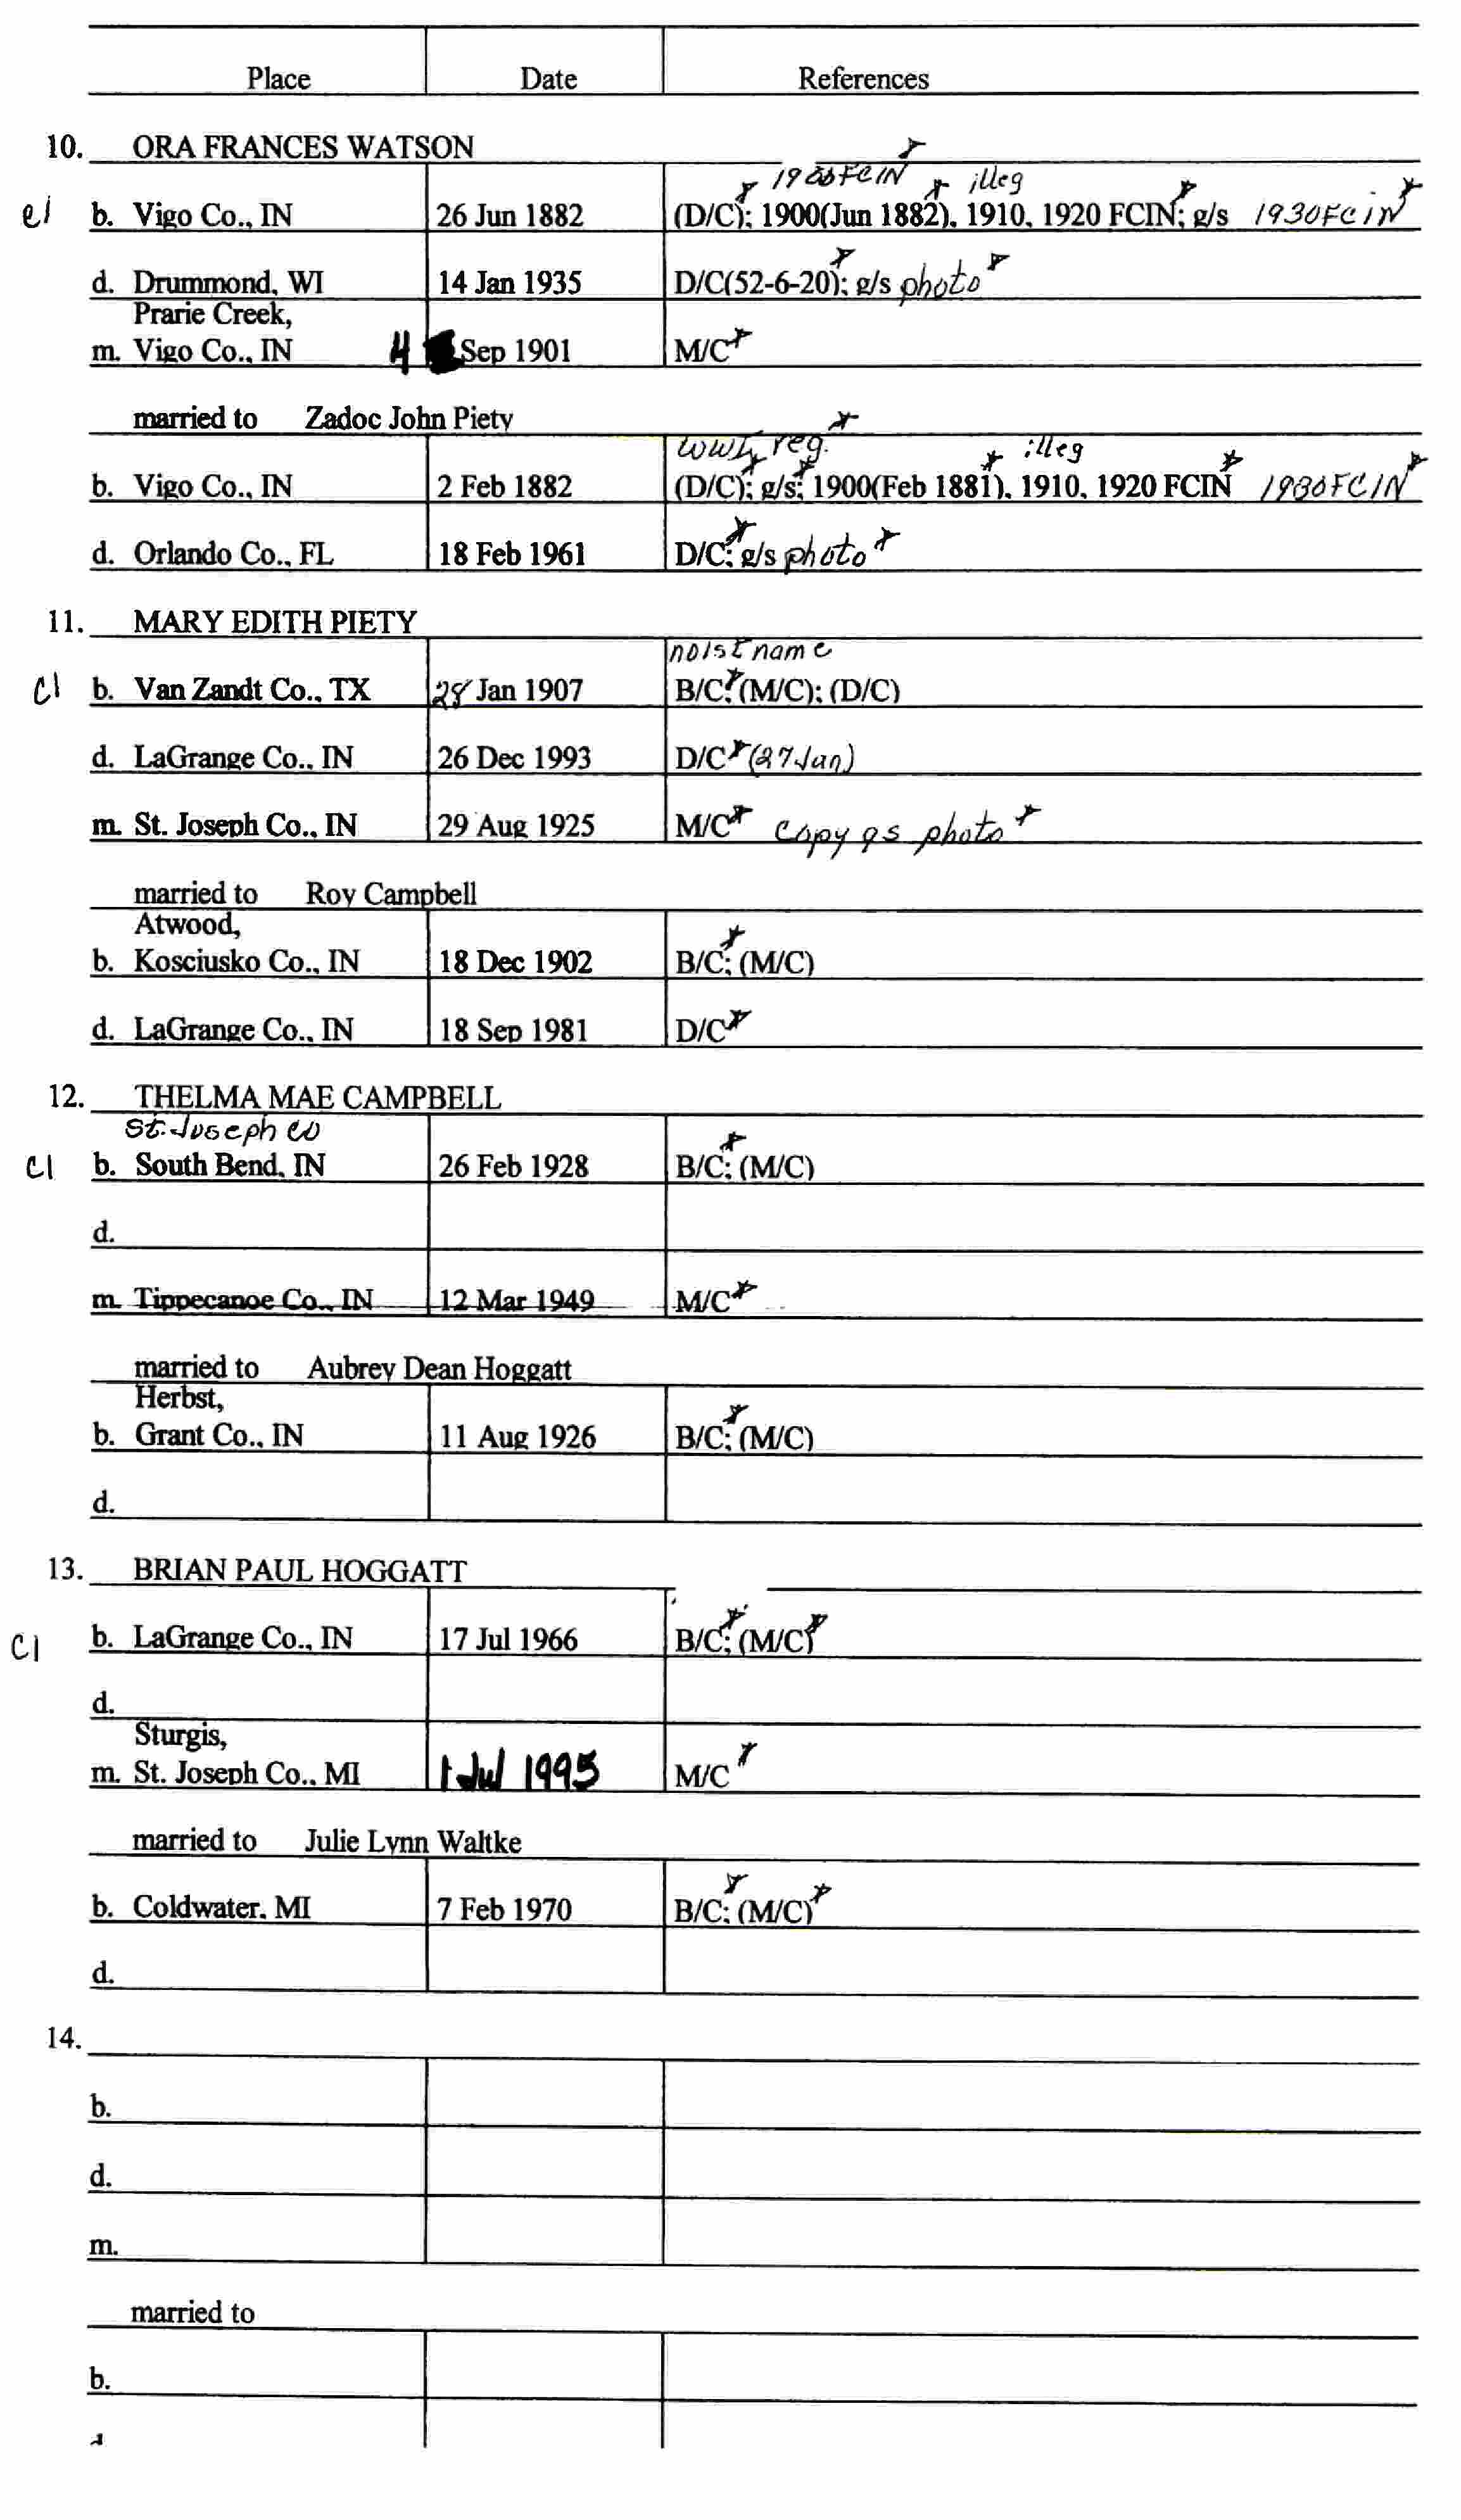 Place Date References
10. ORA FRANCES WATSON
1900 FCIN illeg
c1 b. Vigo Co., IN 26 Jun 1882 (D/C); 1900(Jun 1882), 1910, 1920 FCIN; g/s 1930 FCIN
d. Drummond, WI 14 Jan 1935 D/C(52-6-20); g/s photo
Prarie Creek,
m. Vigo Co., IN 4 Sep 1901 M/C
married to Zadoc John Piety
WWI reg. illeg
b. Vigo Co., IN 2 Feb 1882 (D/C); g/s; 1900(Feb 1881), 1910, 1920 FCIN 1930 FCIN
d. Orlando Co., FL 18 Feb 1961 D/C; g/s photo
11. MARY EDITH PIETY
no 1st name
c1 b. Van Zandt Co., TX 28 Jan 1907 B/C; (M/C); (D/C)
d. LaGrange Co., IN 26 Dec 1993 D/C (27 Jan)
m. St. Joseph Co., IN 29 Aug 1925 M/C copy gs photo
married to Roy Campbell
Atwood,
b. Kosciusko Co., IN 18 Dec 1902 B/C; (M/C)
d. LaGrange Co., IN 18 Sep 1981 D/C
12. THELMA MAE CAMPBELL
St. Joseph Co
c1 b. South Bend, IN 26 Feb 1928 B/C; (M/C)
d.
m. Tippecanoe Co., IN 12 Mar 1949 M/C
married to Aubrey Dean Hoggatt
Herbst,
b. Grant Co., IN 11 Aug 1926 B/C; (M/C)
d.
13. BRIAN PAUL HOGGATT
c1 b. LaGrange Co., IN 17 Jul 1966 B/C; (M/C)
d.
Sturgis,
m. St. Joseph Co., MI 1 Jul 1995 M/C
married to Julie Lynn Waltke
b. Coldwater, MI 7 Feb 1970 B/C; (M/C)
d.
14.
b.
d.
m.
married to
b.